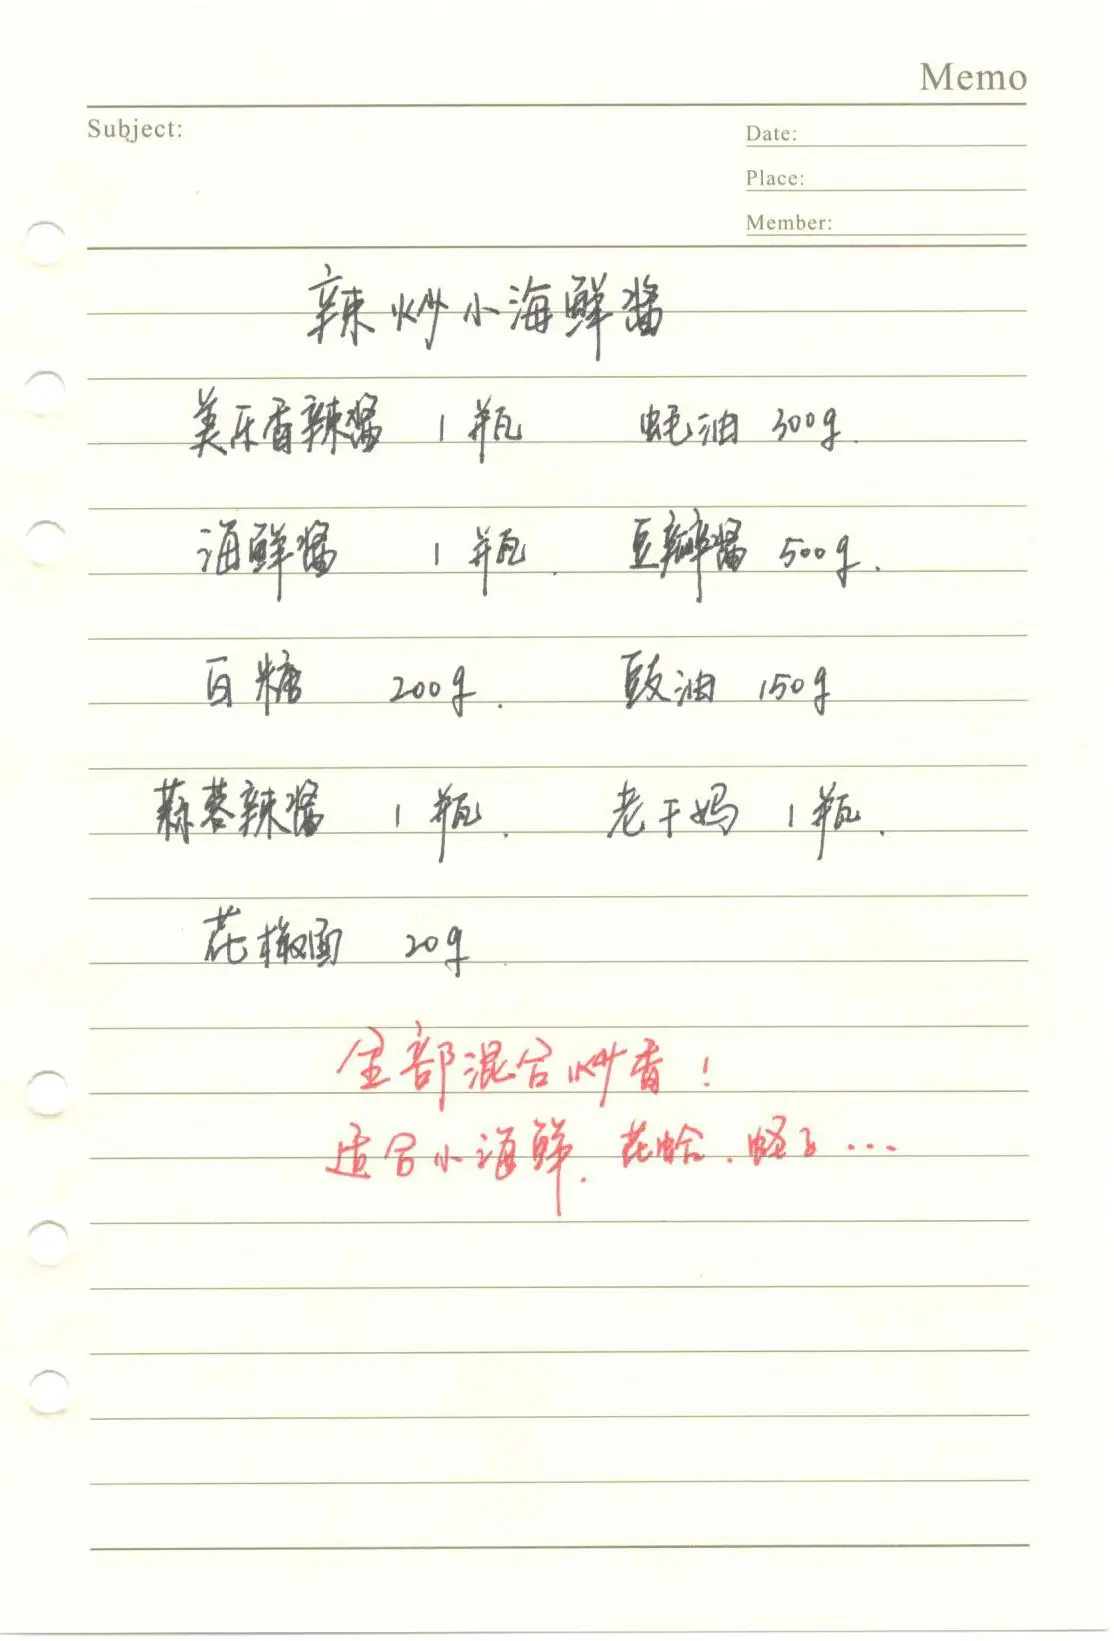 Memo
Subject:
Date:
Place:
Member:
辣炒小海鲜酱
美乐香辣酱 1瓶 蚝油 300g.
海鲜酱 1瓶. 豆瓣酱 500g.
白糖 200g. 豉油 150g
蒜蓉辣酱 1瓶. 老干妈 1瓶.
花椒面 20g.
全部混合炒香!
适合小海鲜. 花蛤. 蛏子...